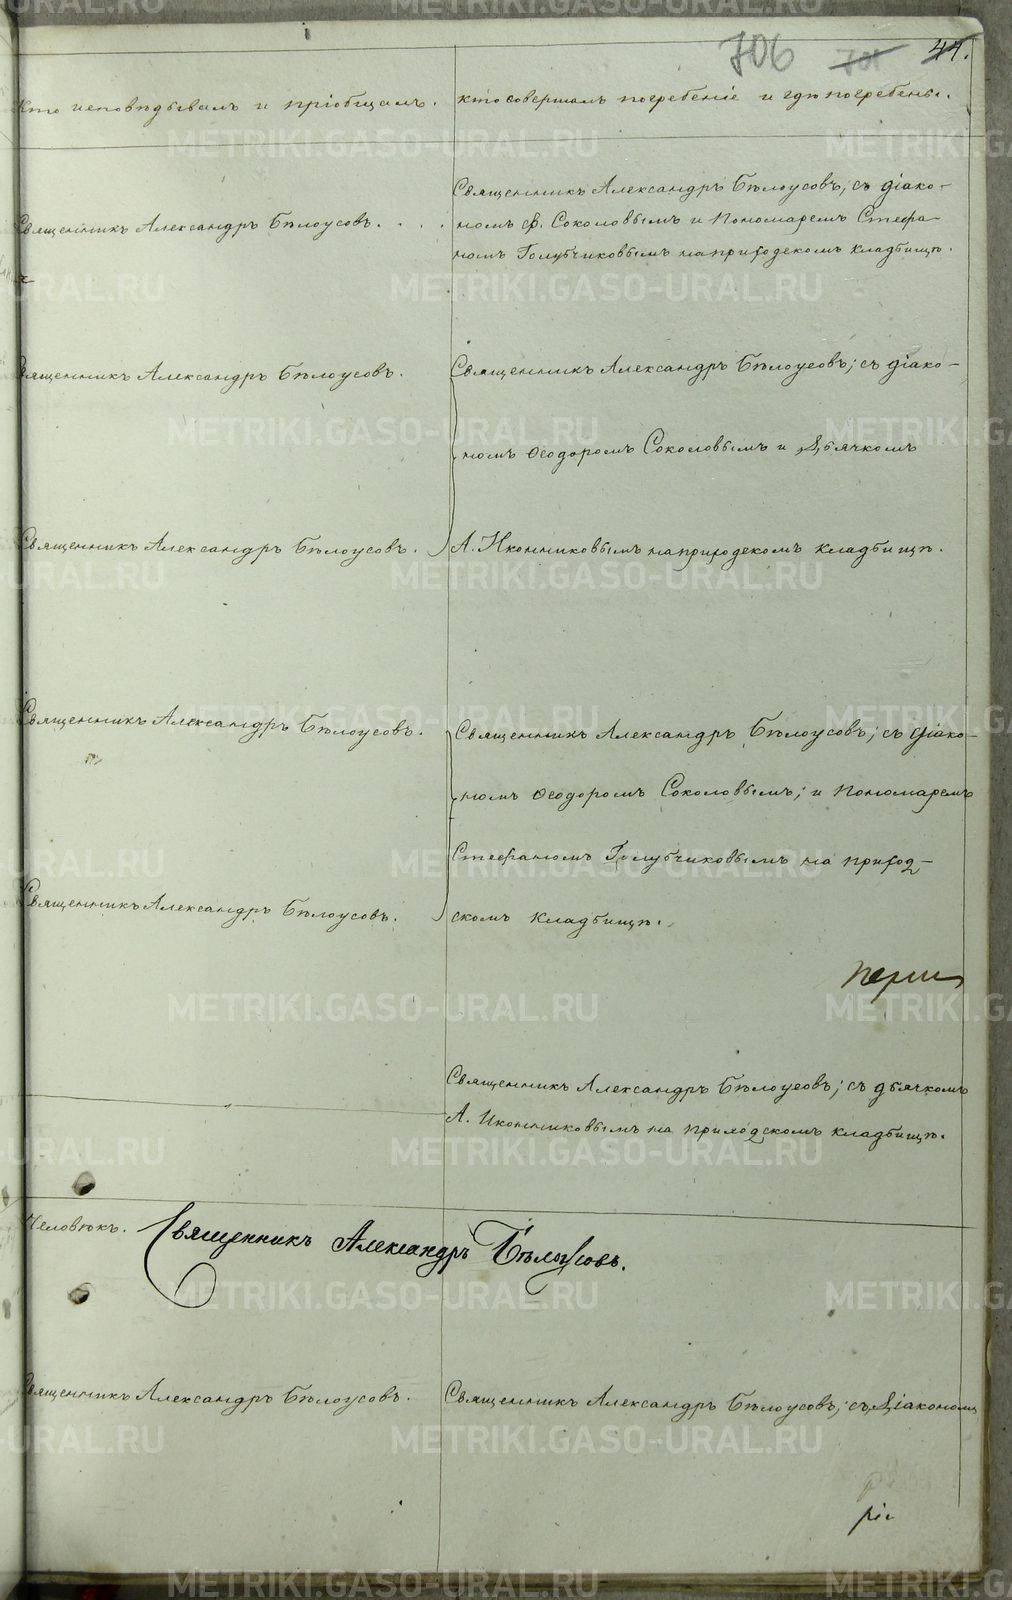 706 701 44.
Кто исповѣдывалъ и пріобщалъ.
кто совершалъ погребеніе и гдѣ погребены.
Священникъ Александръ Бѣлоусовъ. . .
Священникъ Александръ Бѣлоусовъ; съ діако-
номъ Ѳ. Соколовымъ и Пономаремъ Стефа-
номъ Голубчиковымъ на приходскомъ кладбищѣ.
Священникъ Александръ Бѣлоусовъ.
Священникъ Александръ Бѣлоусовъ; съ діако-
номъ Ѳеодоромъ Соколовымъ и Дьячкомъ
Священникъ Александръ Бѣлоусовъ.
А. Иконниковымъ на приходскомъ кладбищѣ.
Священникъ Александръ Бѣлоусовъ.
Священникъ Александръ Бѣлоусовъ; съ діако-
номъ Ѳеодоромъ Соколовымъ; и Пономаремъ
Стефаномъ Голубчиковымъ на приход-
Священникъ Александръ Бѣлоусовъ.
скомъ кладбищѣ.
Священникъ Александръ Бѣлоусовъ; съ дьячкомъ
А. Иконниковымъ на приходскомъ кладбищѣ.
Человѣкъ. Священникъ Александръ Бѣлоусовъ.
Священникъ Александръ Бѣлоусовъ.
Священникъ Александръ Бѣлоусовъ; съ Діакономъ
METRIKI.GASO-URAL.RU